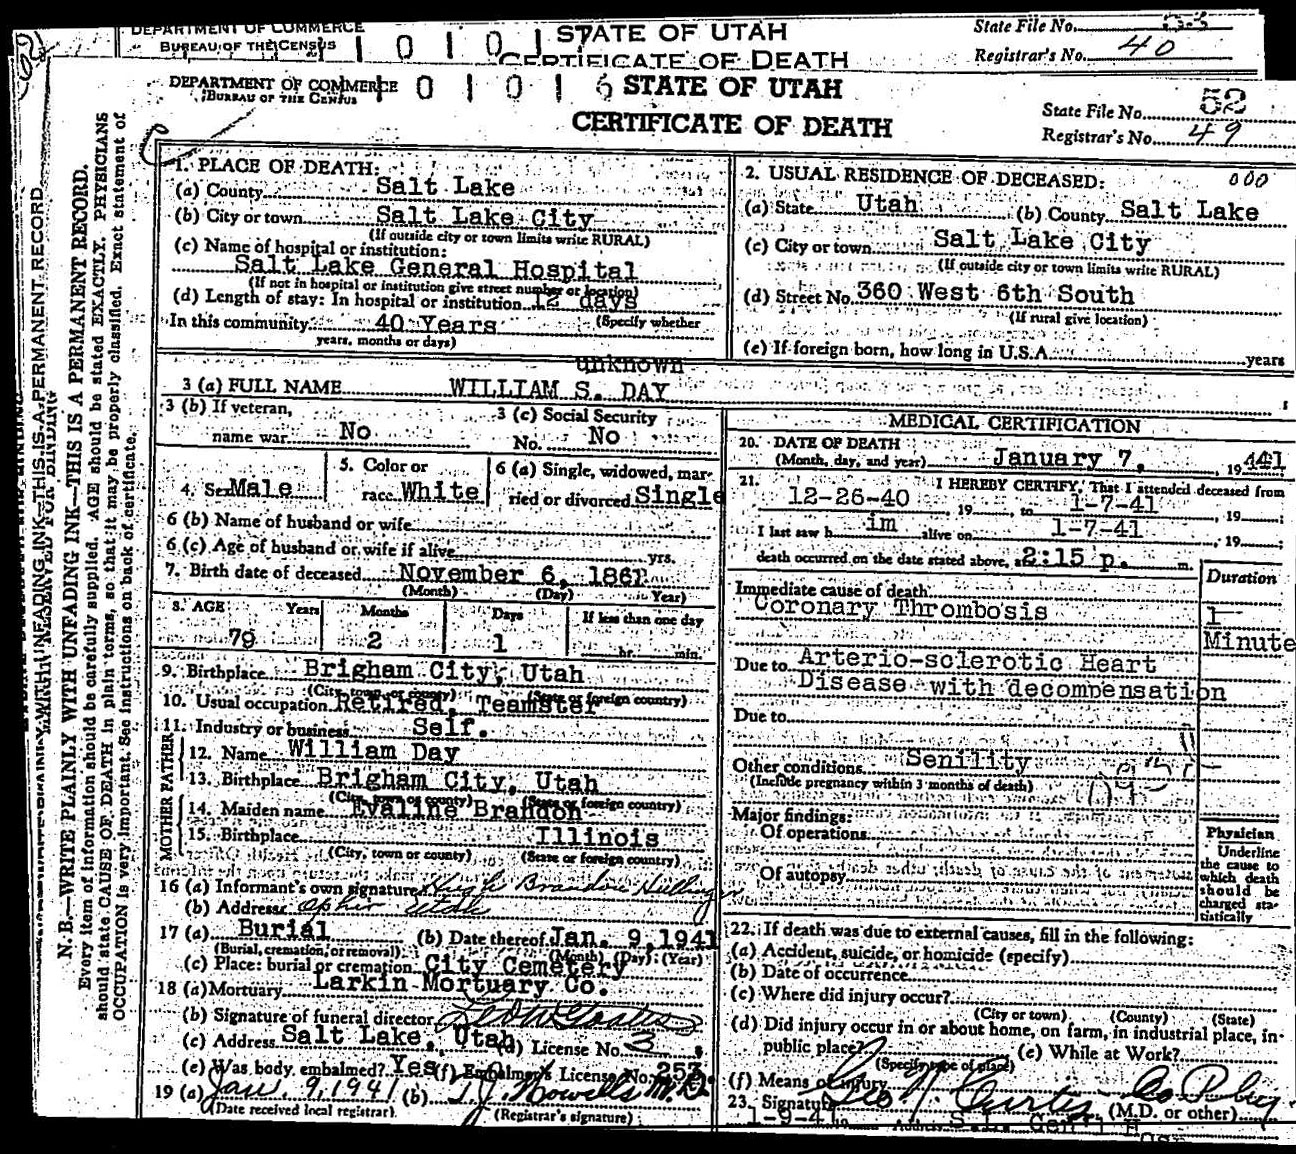 DEPARTMENT OF COMMERCE
BUREAU OF THE CENSUS
STATE OF UTAH
CERTIFICATE OF DEATH
State File No.
Registrar's No. 40
DEPARTMENT OF COMMERCE
BUREAU OF THE CENSUS
STATE OF UTAH
CERTIFICATE OF DEATH
State File No. 52
Registrar's No. 49
N. B.—WRITE PLAINLY WITH UNFADING INK—THIS IS A PERMANENT RECORD.
Every item of information should be carefully supplied. AGE should be stated EXACTLY. PHYSICIANS
should state CAUSE OF DEATH in plain terms, so that it may be properly classified. Exact statement of
OCCUPATION is very important. See instructions on back of certificate.
1. PLACE OF DEATH:
(a) County Salt Lake
(b) City or town Salt Lake City
(If outside city or town limits write RURAL)
(c) Name of hospital or institution:
Salt Lake General Hospital
(If not in hospital or institution give street number or location)
(d) Length of stay: In hospital or institution 12 days
In this community 40 Years (Specify whether
years, months or days)
2. USUAL RESIDENCE OF DECEASED: 000
(a) State Utah (b) County Salt Lake
(c) City or town Salt Lake City
(If outside city or town limits write RURAL)
(d) Street No. 360 West 6th South
(If rural give location)
(e) If foreign born, how long in U.S.A. years
unknown
3 (a) FULL NAME WILLIAM S. DAY
3 (b) If veteran,
name war No
3 (c) Social Security
No. No
4. Sex Male
5. Color or
race White
6 (a) Single, widowed, mar-
ried or divorced Single
6 (b) Name of husband or wife
6 (c) Age of husband or wife if alive yrs.
7. Birth date of deceased November 6, 1861
(Month) (Day) Year)
8. AGE Years Months Days If less than one day
79 2 1 hr. min.
9. Birthplace Brigham City, Utah
(City, town, or county) (State or foreign country)
10. Usual occupation Retired, Teamster
11. Industry or business Self.
FATHER
12. Name William Day
13. Birthplace Brigham City, Utah
(City, town or county) (State or foreign country)
MOTHER
14. Maiden name Evaline Brandon
15. Birthplace Illinois
(City, town or county) (State or foreign country)
16 (a) Informant's own signature Hugh Brandon
(b) Address Ophir Utah
17 (a) Burial (b) Date thereof Jan. 9, 1941
(Burial, cremation, or removal) (Month) (Day) (Year)
(c) Place: burial or cremation City Cemetery
18 (a) Mortuary Larkin Mortuary Co.
(b) Signature of funeral director
(c) Address Salt Lake, Utah (d) License No. 3
(e) Was body embalmed? Yes (f) Embalmer's License No. 253
19 (a) Jan. 9, 1941 (b) T.J. Howells M.D.
(Date received local registrar) (Registrar's signature)
MEDICAL CERTIFICATION
20. DATE OF DEATH
(Month, day, and year) January 7, 1941
21. I HEREBY CERTIFY, That I attended deceased from
12-26-40, 19 , to 1-7-41, 19 ;
I last saw h im alive on 1-7-41, 19 ;
death occurred on the date stated above, at 2:15 p. m.
Duration
Immediate cause of death
Coronary Thrombosis 1
Minute
Due to Arterio-sclerotic Heart
Disease with decompensation
Due to
Other conditions Senility
(Include pregnancy within 3 months of death)
Major findings:
Of operations
Of autopsy
Physician
Underline
the cause to
which death
should be
charged sta-
tistically
22. If death was due to external causes, fill in the following:
(a) Accident, suicide, or homicide (specify)
(b) Date of occurrence
(c) Where did injury occur?
(City or town) (County) (State)
(d) Did injury occur in or about home, on farm, in industrial place, in
public place? (e) While at Work?
(Specify type of place)
(f) Means of injury
23. Signature Geo N. Curtis (M.D. or other)
1-9-41 Address S.L. Gen'l Hosp